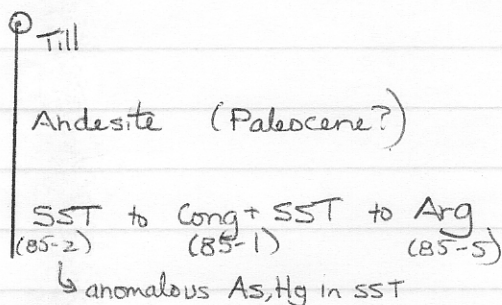 Till
Andesite (Paleocene?)
SST to Cong + SST to Arg
(85-2) (85-1) (85-5)
↳ anomalous As, Hg in SST